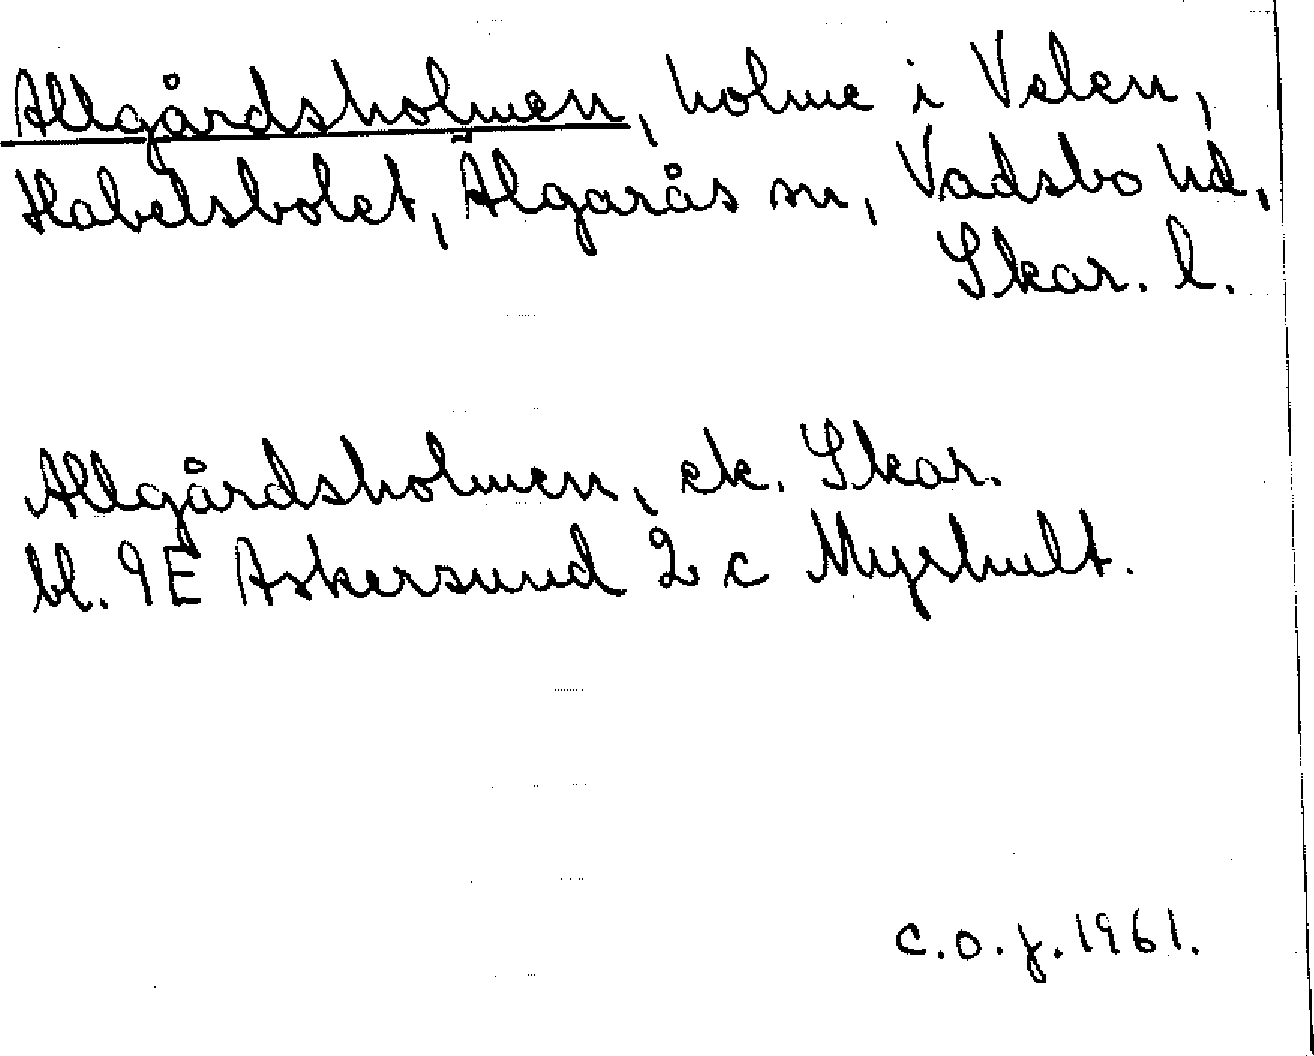 Allgårdsholmen, holme i Velen,
Habelsbolet, Älgarås sn, Vadsbo hd,
Skar. l.
Allgårdsholmen, ek. Skar.
bl. 9E Askersund 2 c Myrhult.
c.o.j. 1961.